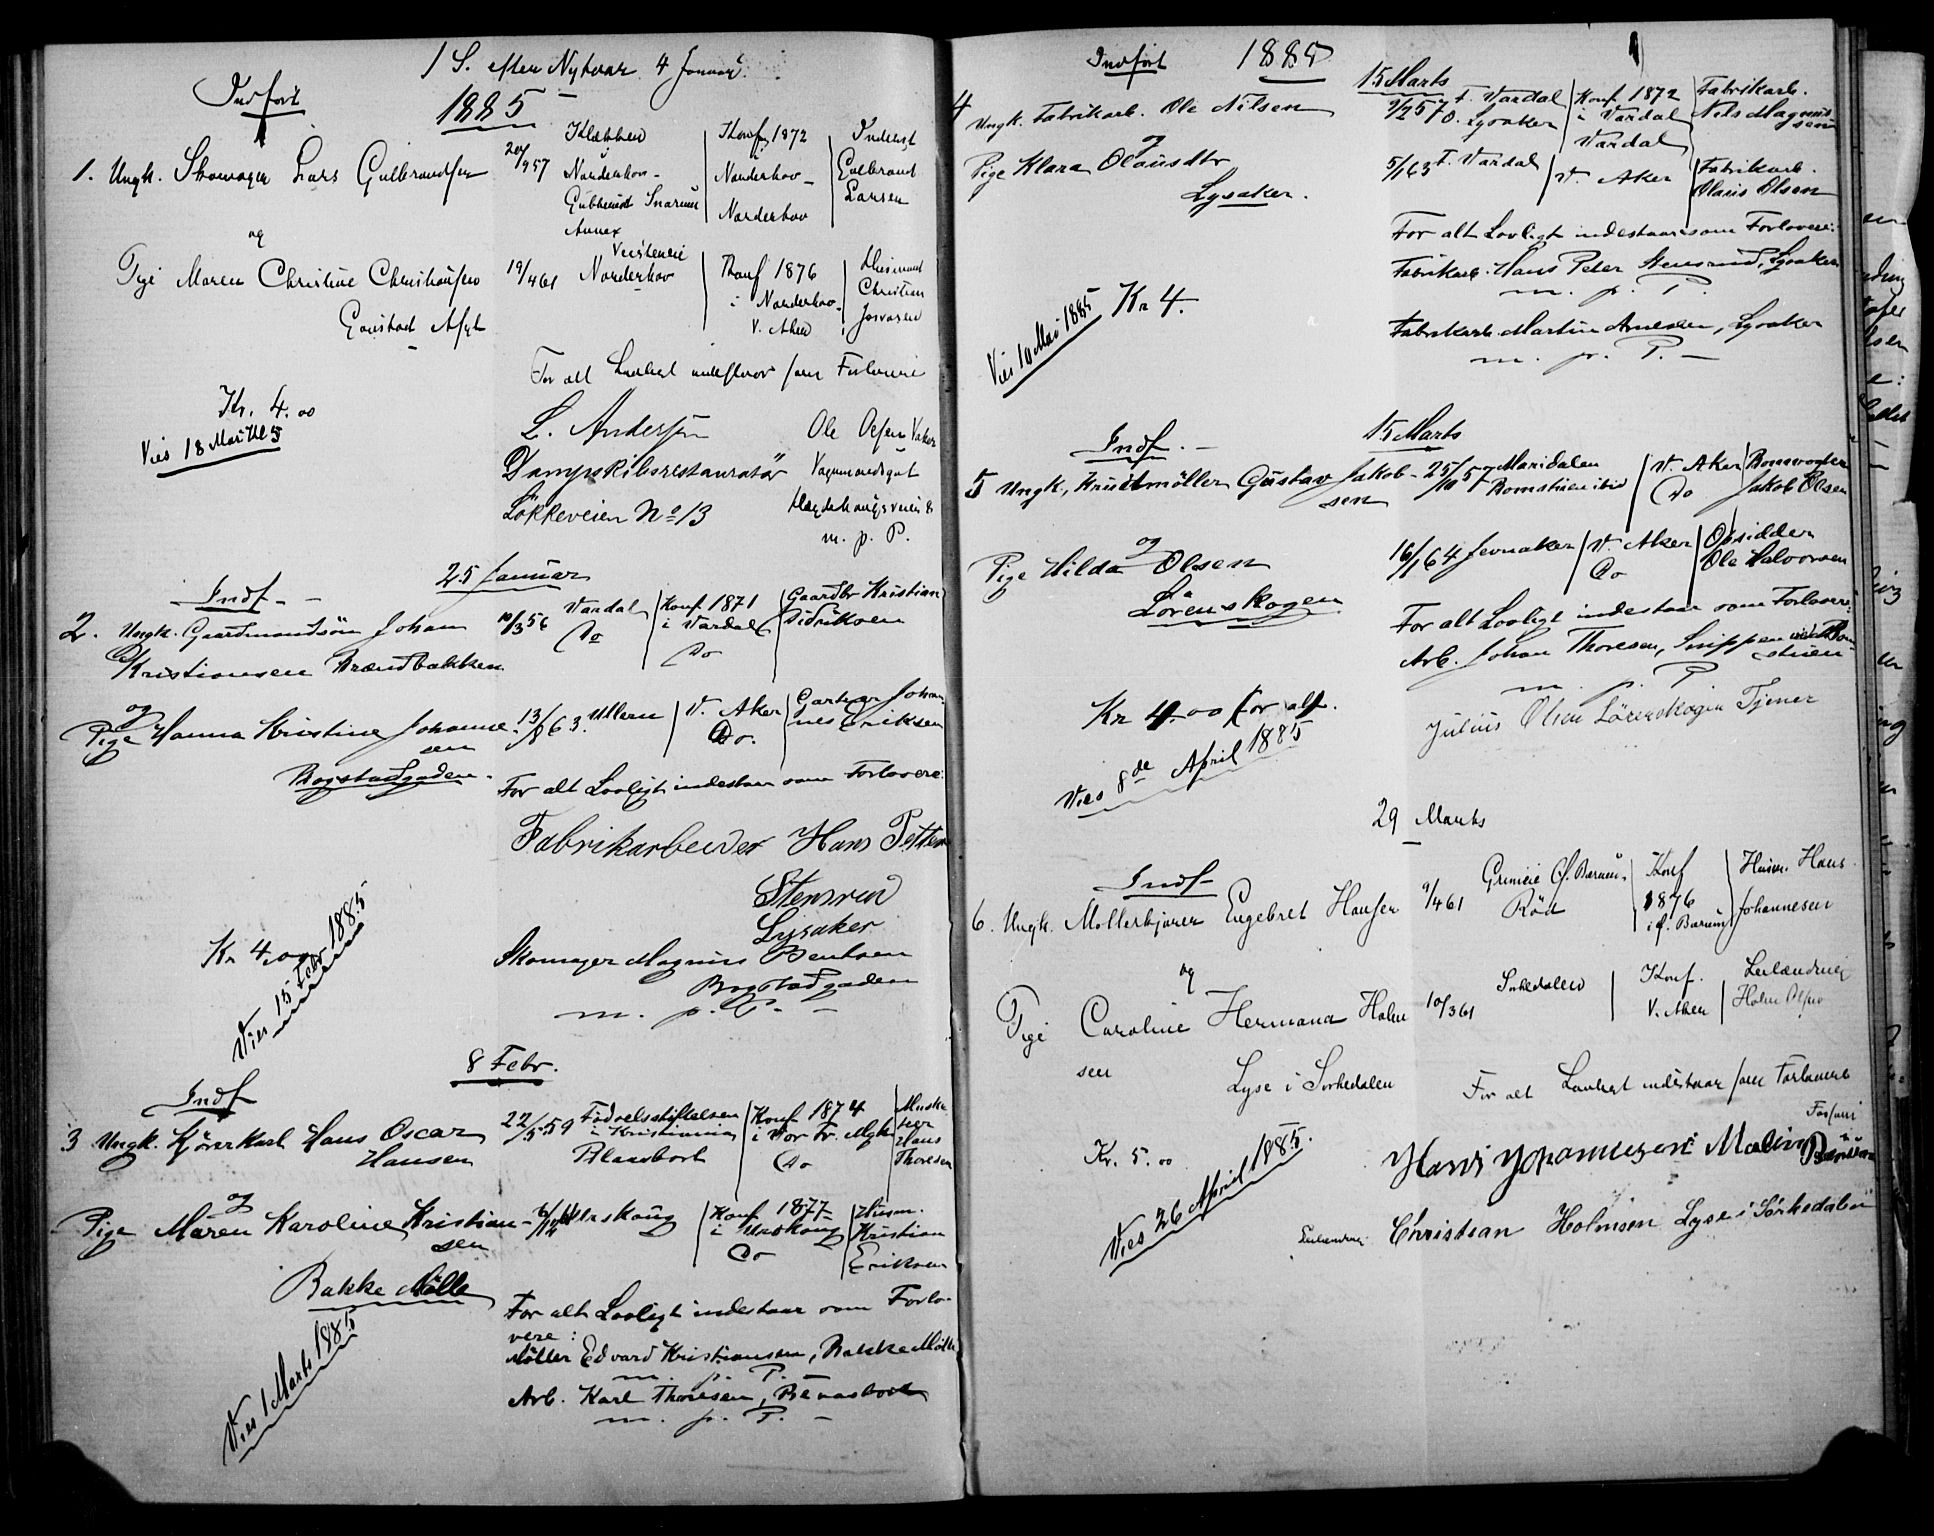 1 S. efter Nytaar 4 Januar.
Indført
1885
1. Ungk. Skomager Lars Gulbrandsen
20/9 57
Klækken
Norderhov
Snarum
Annex
Konf. 1872
Norderhov
Norderhov
Inderst
Gulbrand
Larsen
og
Pige Maren Christine Christiansen
Gaustad Asyl
19/4 61
Norderhov
Konf 1876
i Norderhov
V. Aker
Husmand
Christian
For alt Lovligt indestaar som Forlovere
Kr. 4.00
Viet 18 Mai 1885
L. Andersen
Dampskibsrestauratør
Løkkeveien No 13
Ole Olsen
Vognmandsgut
Hegdehaugsveien 8
m. p. P.
25 Januar
Indf.
2. Ungk. Gaardmandssøn Johan
Kristiansen Brændbakken
10/3 56
Vardal
Do
Konf 1871
i Vardal
Do
Gaardbr Kristian
Didriksen
og
Pige Hanna Kristine Johanne-
sen
Bogstadgaden.
13/8 63.
Ullern
V. Aker
Do.
Gartner Johan-
nes Eriksen
For alt Lovligt indestaar som Forlovere:
Fabrikarbeider Hans Petter
Stensrud
Lysaker
Skomager Magnus Bentsen
Bogstadgaden
m. p. P.
Kr 4.00
Viet 15 Febr 1885
8 Febr.
Indf
3 Ungk. Kjørerkarl Hans Oscar
Hansen
22/5 59
Fødselsstiftelsen
i Kristiania
Blaasbort
Konf 1874
i Vor Fr. Mgh
Do
Muske-
teer
Hans
Thoresen
og
Pige Maren Karoline Kristian-
sen
Bakke Mølle
Urskoug
Konf 1877
i Urskoug
Do
Husm.
Kristian
Eriksen
For alt Lovligt indestaar som Forlo-
vere:
Møller Edvard Kristiansen, Bakke Mølle
m. p. P.
Arb. Karl Thoresen, Blaasbort
m. p. P.
Viet 1 Marts 1885
Indført 1885
15 Marts
4 Ungk. Fabrikarb. Ole Nilsen
9/2 57
F. Vardal
O. Lysaker
Konf 1872
i Vardal
Vardal
Fabrikarb.
Nils Magnus-
sen
og
Pige Klara Olausdtr
Lysaker.
5/1 63
F. Vardal
V. Aker
Fabrikarb.
Olaus Olsen
For alt Lovligt indestaar som Forlovere:
Fabrikarb. Hans Peter Stensrud, Lysaker
m. p. P.
Fabrikarb. Martin Arnesen, Lysaker
m. p. P.
Kr 4.
Viet 10 Mai 1885
15 Marts
Indf.
5 Ungk. Krudtmøller Gustav Jakob-
sen
25/10 57
Maridalen
Bomstuen ibid
V. Aker
Do
Bomvogter
Jakob Olsen
og
Pige Hilda Olsen
Lørenskogen
16/1 64
Jevnaker
V. Aker
Do
Opsidder
Ole Halvorsen
For alt Lovligt indestaar som Forlovere:
Arb. Johan Thoresen, Snippen ved Bom-
stuen
m. p. P
Julius Olsen Lørenskogen Tjener
Kr 4.00 for alt.
Viet 8de April 1885
29 Marts
Indf
6. Ungk. Møllerkjører Engebret Hansen
9/4 61
Rød
Konf
1876
i Ø. Bærum
Husm. Hans
Johannesen
og
Pige Caroline Hermana Holm
sen
Lyse i Sørkedalen
10/3 61
Sørkedalen
Konf.
V. Aker
Leilænding
Holm Olsen
For alt Lovligt indestaar som Forlovere
Kr. 5.00
Viet 26 April 1885.
Hans Johannesen
Leilænding Christian Holmsen Lyse i Sørkedalen